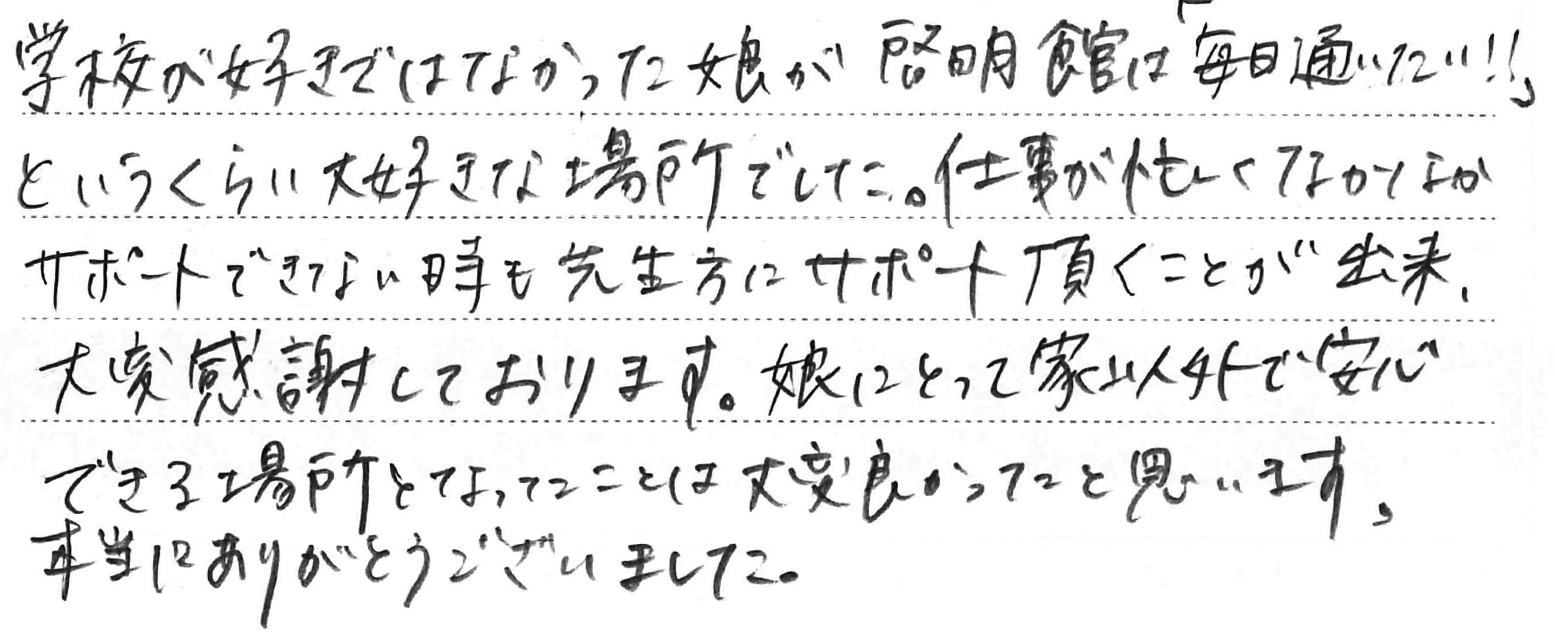 学校が好きではなかった娘が 啓明館は「毎日通いたい!!」
というくらい大好きな場所でした。仕事が忙しくなかなか
サポートできない時も先生方にサポート頂くことが出来、
大変感謝しております。娘にとって家以外で安心
できる場所となったことは大変良かったと思います。
本当にありがとうございました。